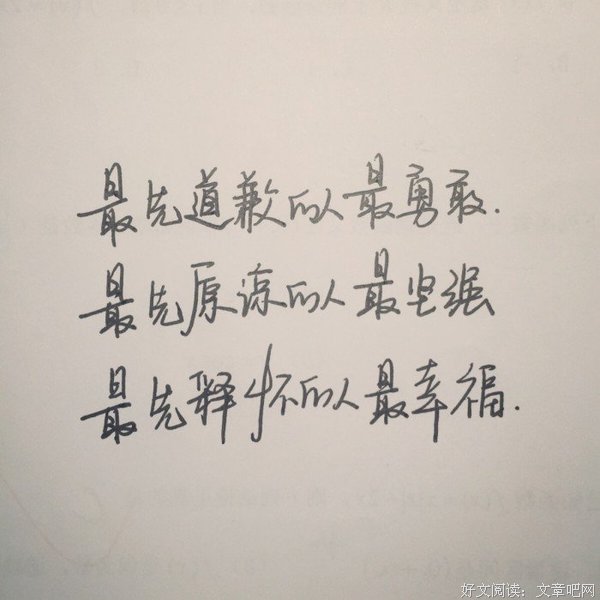 最先道歉的人最勇敢.
最先原谅的人最坚强
最先释怀的人最幸福.
好文阅读：文章吧网